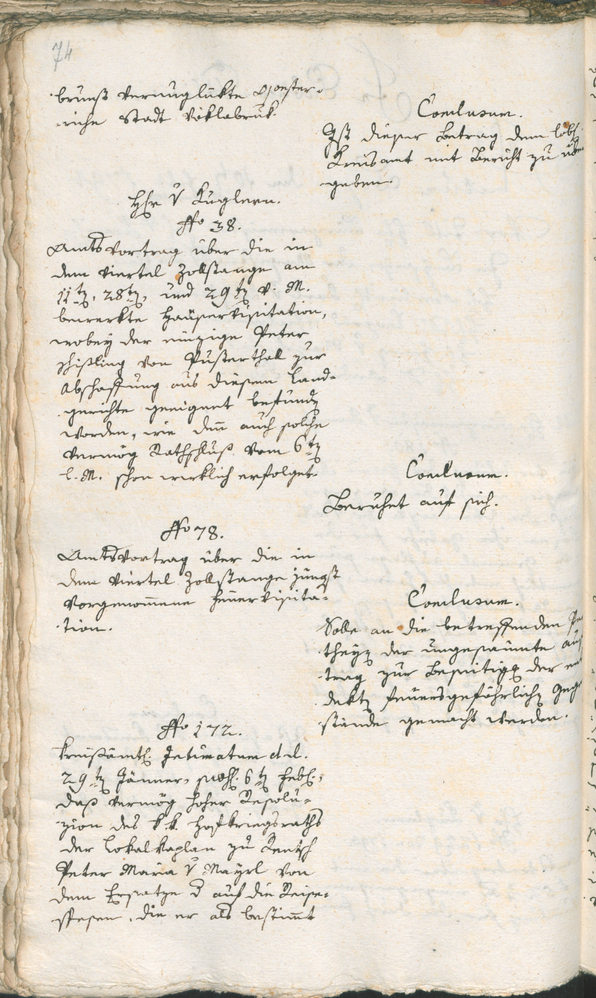 74
brunst verunglückte Oester-
reiche Stadt Vöklabruk.
Conclusum.
Ist dieser Betrag dem löbl.
Kreisamt mit Bericht zu über
geben.
Hhr v Kuglern.
No 38.
Amtsvortrag über die in
dem Viertel Zollstange am
11tn, 28tn, und 29tn v. M.
bemerkte Häuservisitation,
wobey der einzige Peter
von Pusterthal zur
Abschaffung aus diesem Land-
gerichte geeignet befundn
worden, wie denn auch solche
vermög Rathschluß vom 6tn
l. M. schon wirklich erfolget.
Conclusum.
Beruhet auf sich.
No 78.
Amtsvortrag über die in
dem Viertel Zollstange jüngst
vorgenommene Feuervisita-
tion.
Conclusum.
Solle an die betreffenden
theyn der ungesaumte auf
trag zur Beseitigg der
dektn feuersgefährlichn Geg
stände gemacht werden.
No 172.
Kreisämtl. Intimatum dd.
29tn Jänner, 6tn Febr.,
daß vermög hoher Resolu-
zion des k. k. Hofkriegsraths
der Lokalkaplan zu
Peter Maria v Mayrl von
dem Ersatze d auf die Reise-
spesen, die er als bestimmt